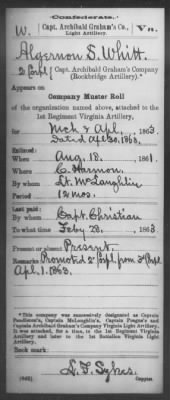 Confederate.
W. Capt. Archibald Graham's Co., Light Artillery. Va.
Algernon S. Whitt.
2 Corpl, Capt. Archibald Graham's Company
(Rockbridge Artillery).*
Appears on
Company Muster Roll
of the organization named above, attached to the
1st Regiment Virginia Artillery,
for Mch & Apl, 1863.
Dated Apl 30, 1863.
Enlisted:
When Aug. 18, 1861.
Where C. Harmon.
By whom Lt. McLaughlin
Period 12 mos.
Last paid:
By whom Capt. Christian
To what time Feby 28, 1863.
Present or absent Present.
Remarks Promot'd 2" Corpl. from 3" Corpl.
Apl. 1. 1863.
*This company was successively designated as Captain
Pendleton's, Captain McLaughlin's, Captain Poague's and
Captain Archibald Graham's Company Virginia Light Artillery.
It was attached, for a time, to the 1st Regiment Virginia
Artillery and later to the 1st Battalion Virginia Light
Artillery.
Book mark:
L. T. Sykes
(642) Copyist.